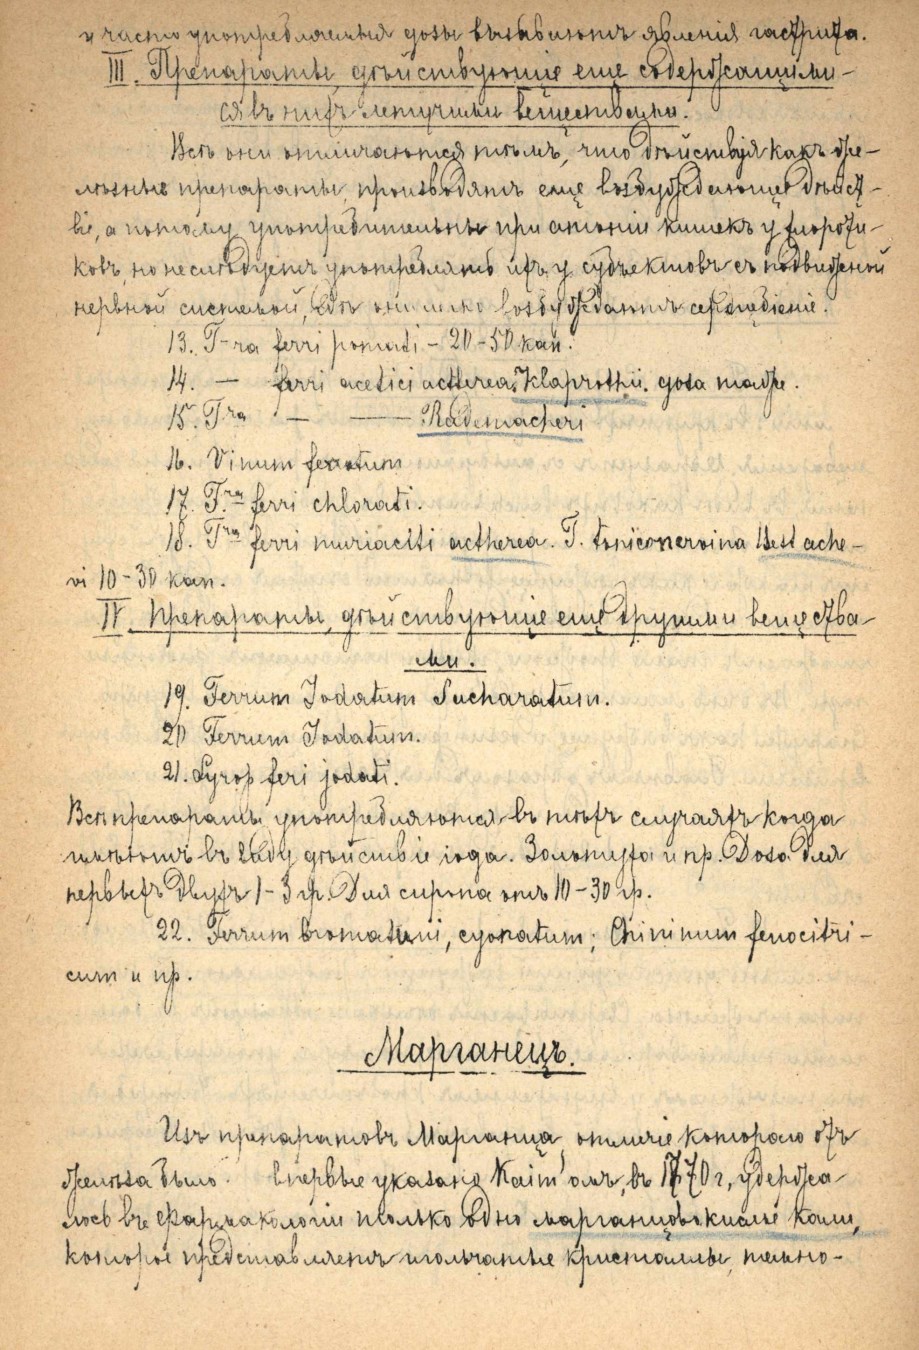 и часто употребляемыя дозы вызываютъ явленія гастрита.
III. Препараты, дѣйствующіе еще содержащими-
ся въ нихъ летучими веществами.
Всѣ они отличаются тѣмъ, что дѣйствуя какъ же-
лѣзные препараты, производятъ еще возбуждающее дѣйст-
віе, а потому употребительны при атоніи кишекъ у хлороти-
ковъ, но не слѣдуетъ употреблять ихъ у субъектовъ съ подвижной
нервной системой, гдѣ они лишь возбуждаютъ сердцебіеніе.
13. T-ra ferri pomati - 20-50 кап.
14. — ferri acetici aetherea Klaprothii. доза таже.
15. Tra — — Rademacheri
16. Vinum ferratum
17. Tra ferri chlorati.
18. Tra ferri muriaciti aetherea. T. tonico nervina Bestache-
vi 10-30 кап.
IV. Препараты, дѣйствующіе еще другими вещества-
ми.
19. Ferrum Jodatum Sacharatum.
20 Ferrum Jodatum.
21. Syrop feri jodati.
Всѣ препараты употребляются въ тѣхъ случаяхъ когда
имѣютъ въ виду дѣйствіе іода. Золотуха и пр. Доза для
первыхъ двухъ 1-3 гр. Для сиропа отъ 10-30 гр.
22. Ferrum bromatum, cyonatum; Chininum ferrocitri-
cum и пр.
Марганецъ.
Изъ препаратовъ Марганца, отличіе котораго отъ
желѣза было впервые указано Kaim'омъ, въ 1770 г, удержа-
лось въ Фармакологіи только одно марганцовокислые кали,
которое представляетъ игольчатые кристаллы, темно-